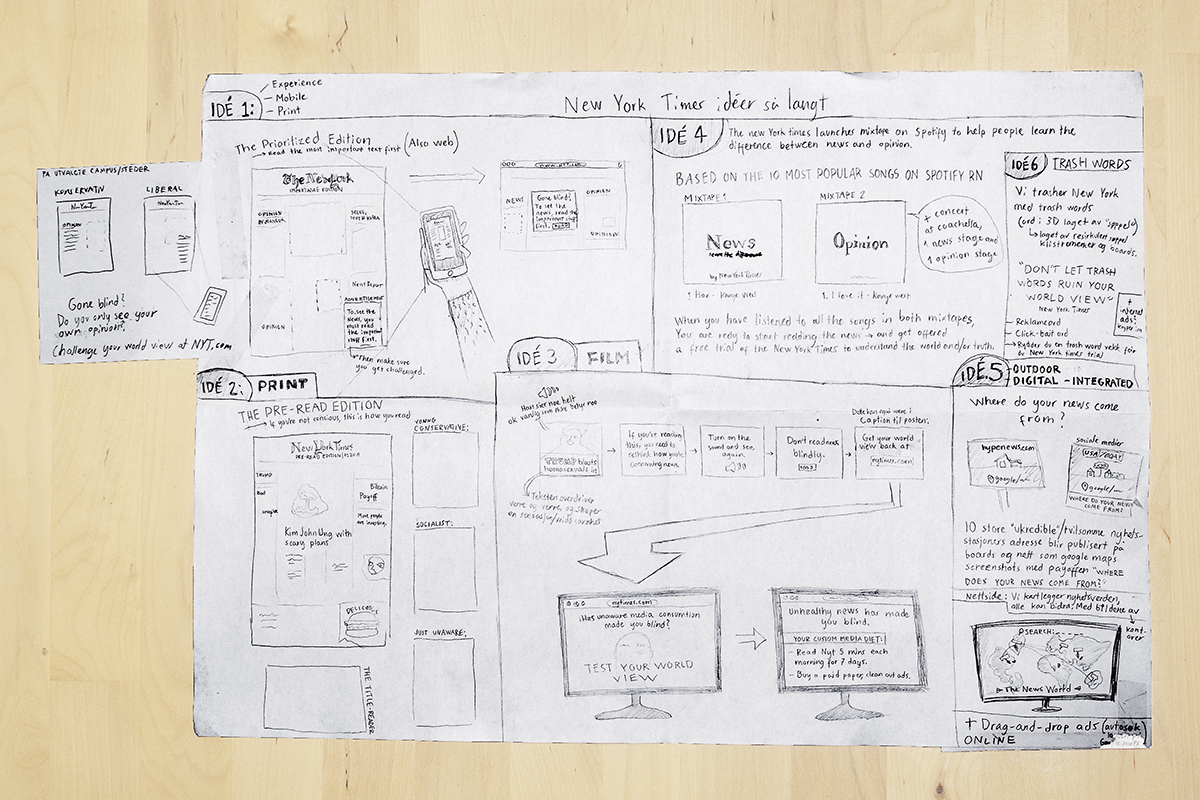 IDÉ 1:
Experience
Mobile
Print
New York Times idéer så langt
The Prioritized Edition (Also web)
Read the most important text first
The New York
OPINION
NEWS REPORT
ADVERTISEMENT
To see the
News, you
must read
the important
stuff first.
OPINION
Then make sure
you get challenged.
NEWS
OPINION
Gone blind?
To see the
news, read the
important stuff
first.
OPINION
PÅ UTVALGTE CAMPUS/STEDER
KONSERVATIV
LIBERAL
Gone blind?
Do you only see your
own opinions?
Challenge your world view at NYT.com
IDÉ 2: PRINT
THE PRE-READ EDITION
If you're not concious, this is how you read
New York Times
PRE-READ EDITION
TRUMP
Bad
Bitcoin
Payoff
Most people
are investing.
Kim John Ung with
scary plans
DELICIOUS
THE TITLE-READER
YOUNG
CONSERVATIVE:
SOCIALIST:
JUST UNAWARE:
IDÉ 3 FILM
Han sier noe helt
ok vanlig som ikke betyr noe
TRUMP blasts
homosexuals in
Teksten overdriver
verre og verre, og skaper
en sensasjon/
If you're reading
this, you need to
rethink how you're
consuming news.
Turn on the
sound and see
again.
Don't read news
blindly.
Dette kan også være i
Caption til posten:
Get your world
view back at
nytimes.com
nytimes.com
Has unaware media consumtion
made you blind?
TEST YOUR WORLD
VIEW
Unhealthy news has made
you blind.
YOUR CUSTOM MEDIA DIET:
- Read Nyt 5 mins each
morning for 7 days.
- Buy a paid paper, clean out ads.
IDÉ 4
The new York times launches mixtape on Spotify to help people learn the
difference between news and opinion.
BASED ON THE 10 MOST POPULAR SONGS ON SPOTIFY RN
MIXTAPE 1
News
learn the difference
by New York Times
MIXTAPE 2
Opinion
1. I love it - Kanye west
+ concert
at coachella,
1 news stage and
1 opinion stage
When you have listened to all the songs in both mixtapes,
You are redy to start redding the news and get offered
a free trial of the New York Times to understand the world and/or truth.
IDÉ 6 TRASH WORDS
Vi trasher New York
med trash words
(ord i 3D laget av "søppel")
laget av resirkulert søppel
klistremerker og boards.
"DON'T LET TRASH
WORDS RUIN YOUR
WORLD VIEW"
New York Times
- Reklameord
- Click-bait ord
Rydder du en trash word vekk får
du New York times trial
+
internet
ads?
IDÉ.5 OUTDOOR
DIGITAL - INTEGRATED
Where do your news come
from?
hypenews.com
google/
sosiale medier
USA/TODAY
google/
WHERE DO YOUR NEWS
COME FROM?
10 store "ukredible"/tvilsomme nyhets-
stasjoners adresse blir publisert på
boards og nett som google maps
screenshots med payoffen "WHERE
DOES YOUR NEWS COME FROM?"
Nettside: Vi kartlegger nyhetsverden,
alle kan bidra. Med bildene av
kont-
orer
SEARCH:
The News World
+ Drag-and-drop ads (autosøk
ONLINE